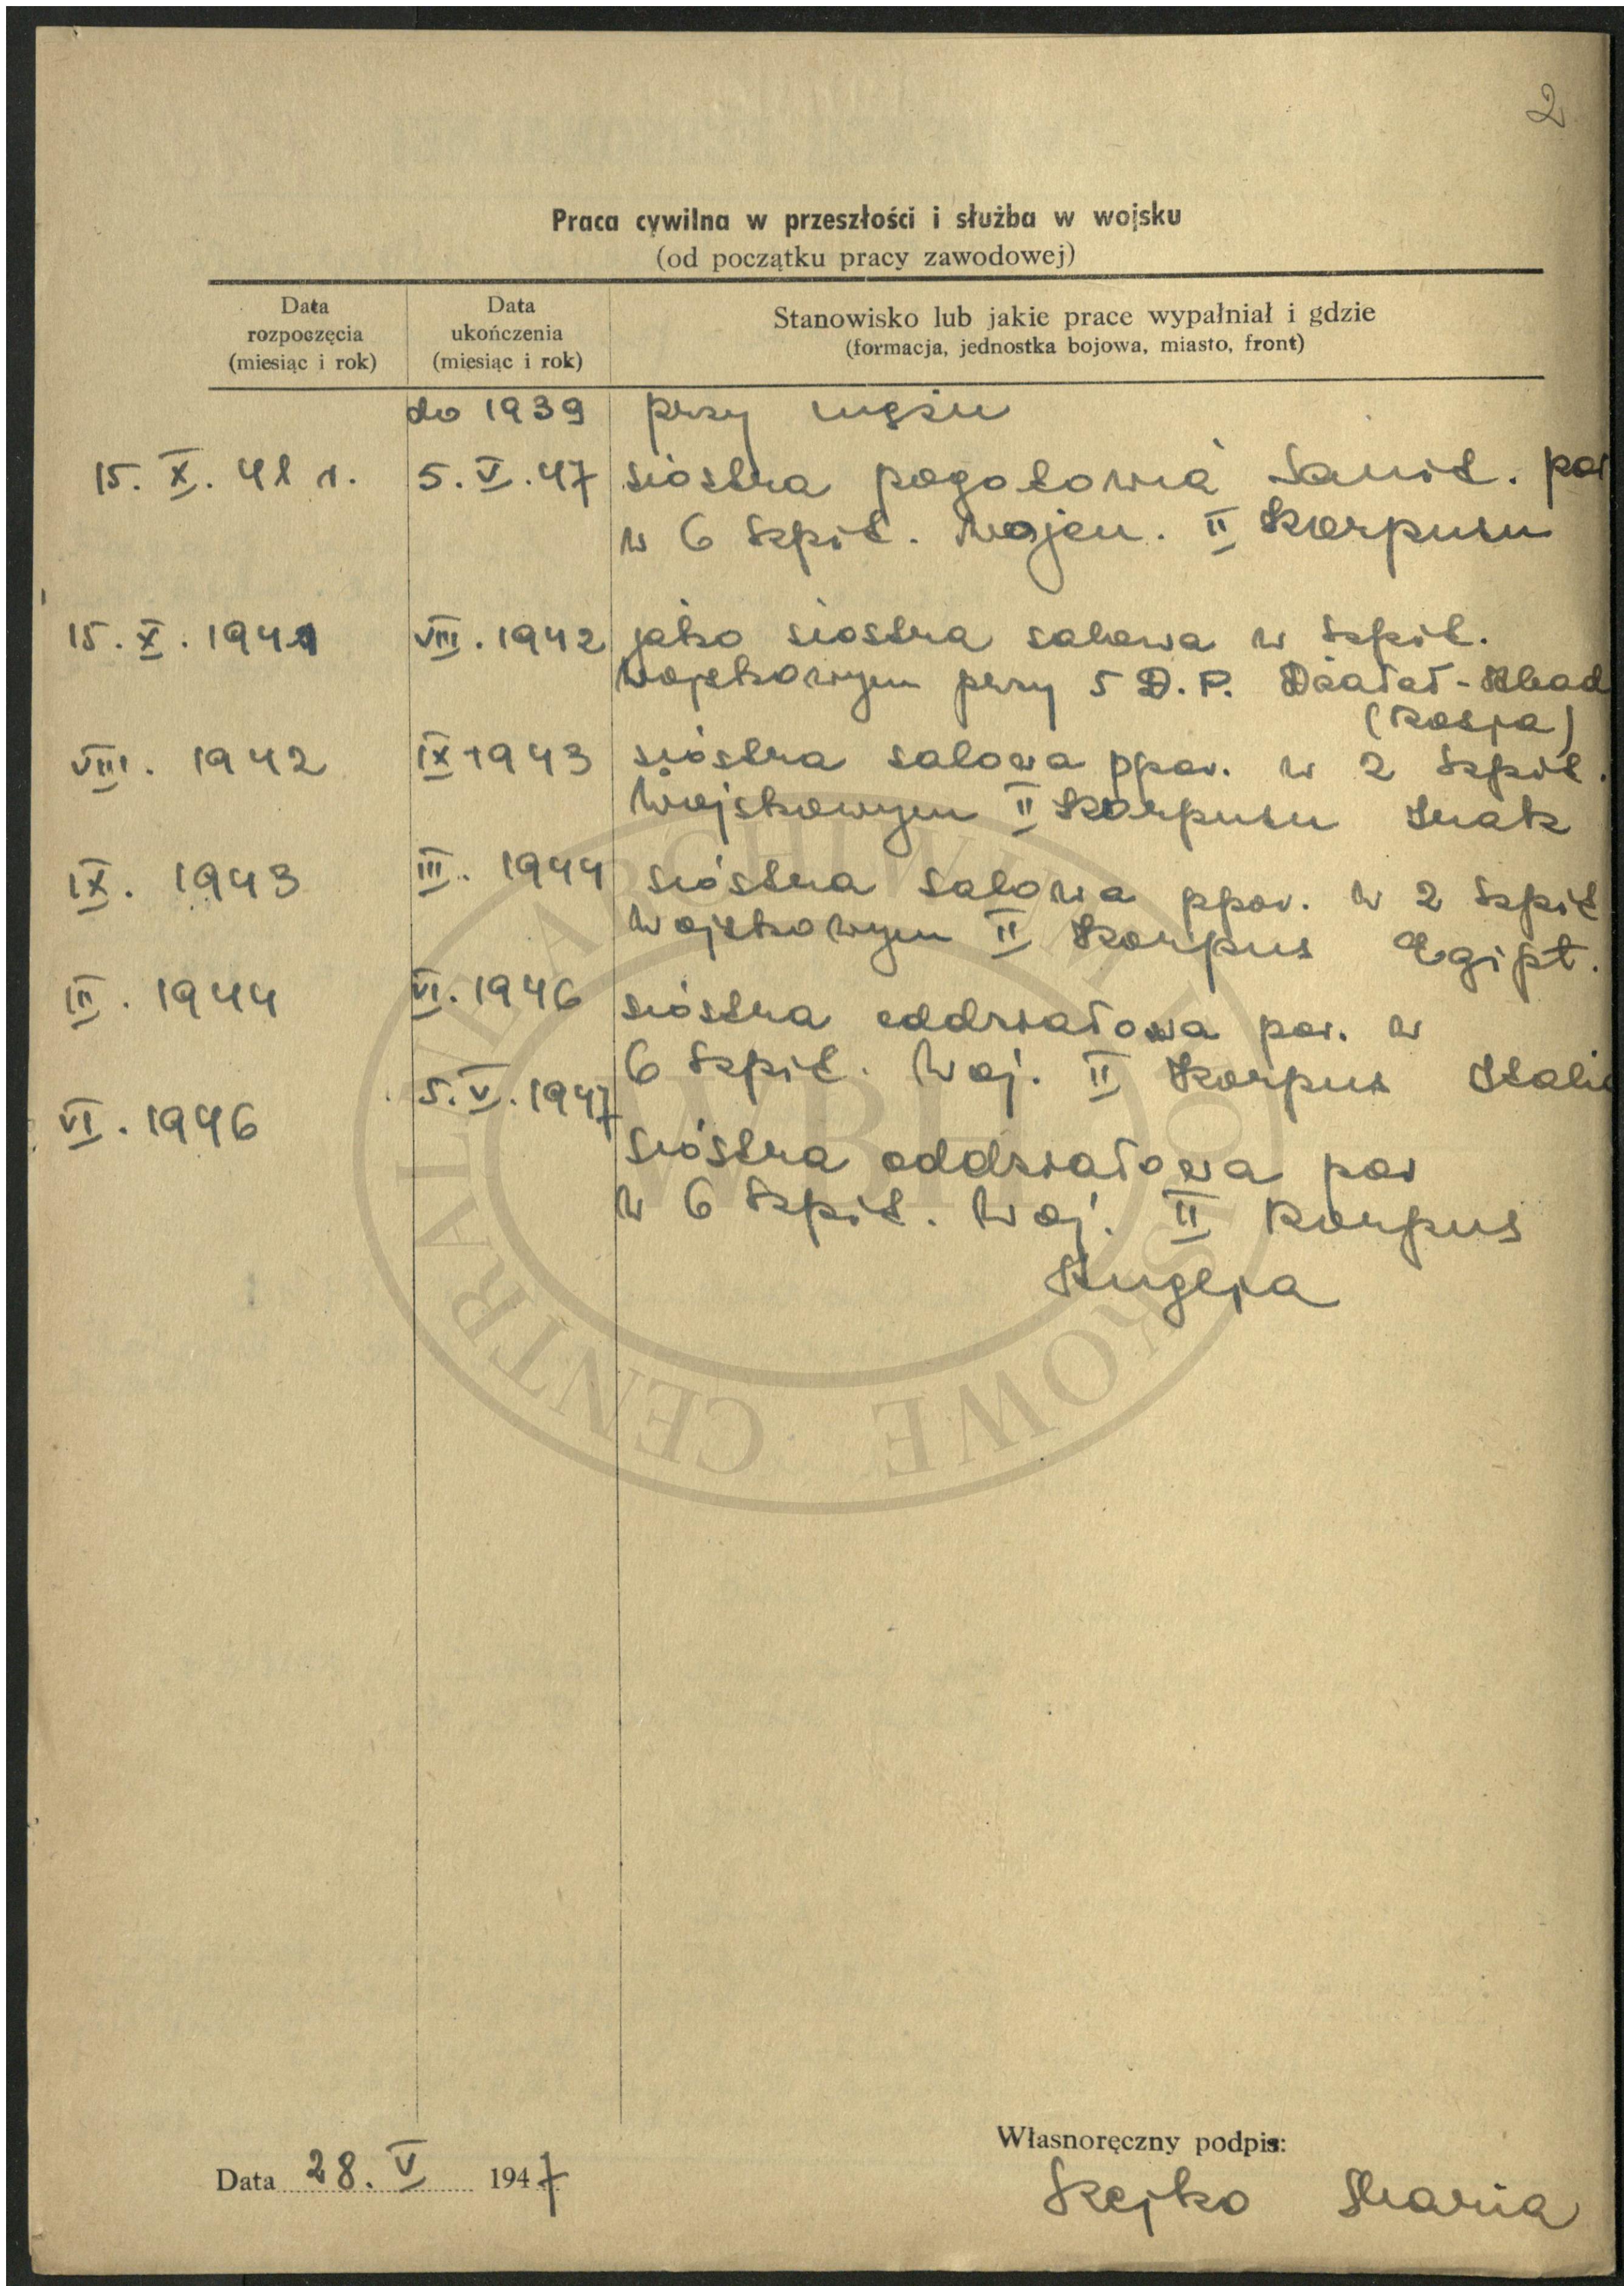 2
Praca cywilna w przeszłości i służba w wojsku
(od początku pracy zawodowej)
Data rozpoczęcia (miesiąc i rok)
Data ukończenia (miesiąc i rok)
Stanowisko lub jakie prace wypałniał i gdzie
(formacja, jednostka bojowa, miasto, front)
do 1939 przy mężu
15. X. 41 r. 5. V. 47 siostra pogotowia Sanit. por
w 6 Szpit. Wojen. II Korpusu
15. X. 1941 VIII. 1942 jako siostra salowa w Szpit.
Wojskowym przy 5 D.P. Dżałał-Abad
(Rosja)
VIII. 1942 IX 1943 siostra salowa ppor. w 2 Szpit.
Wojskowym II Korpusu Irak
IX. 1943 III. 1944 sióstra salowa ppor. w 2 Szpit
Wojskowym II Korpus Egipt.
III. 1944 VI. 1946 sióstra oddziałowa por. w
6 Szpit. Woj. II Korpus Italia
VI. 1946 5. V. 1947 sióstra oddziałowa por
w 6 Szpit. Woj. II Korpus
Anglja
CENTRALNE ARCHIWUM WOJSKOWE
WBH
Własnoręczny podpis:
Data 28. V 1947
Maria